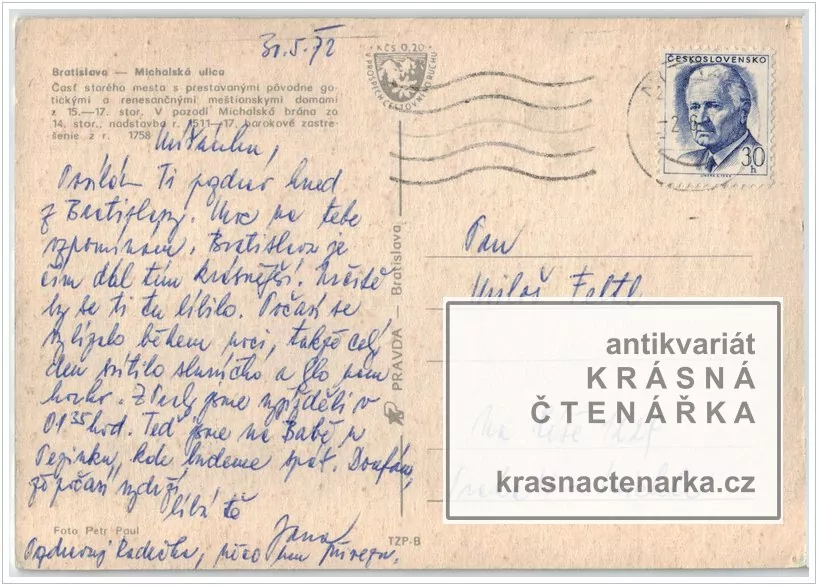 31.5.72
Bratislava — Michalská ulica
Časť starého mesta s prestavanými pôvodne go-
tickými a renesančnými meštianskymi domami
z 15.—17. stor. V pozadí Michalská brána zo
14. stor., nadstavba r. 1511—17, barokové zastre-
šenie z r. 1758
Miláčku,
Posílám Ti pozdrav hned
z Bratislavy. Moc na tebe
vzpomínám. Bratislava je
čím dál tím krásnější. Určitě
by se ti tu líbilo. Počasí se
vylépalo během noci, takže celý
den svítilo sluníčko a bylo nám
horko. Z Prahy jsme vyjížděli v
01 35 hod. Teď jsme na Babě u
Pezinku, kde budeme spát. Doufám,
že počasí vydrží.
líbá tě
Jana
Pozdravuj Radečka, něco mu přivezu.
Foto Petr Paul
TZP-B
PRAVDA — Bratislava
KČS 0,20
V PROSPECH CESTOVNÉHO RUCHU
ČESKOSLOVENSKO
30 h
Pan
Miloš
antikvariát
KRÁSNÁ
ČTENÁŘKA
krasnactenarka.cz